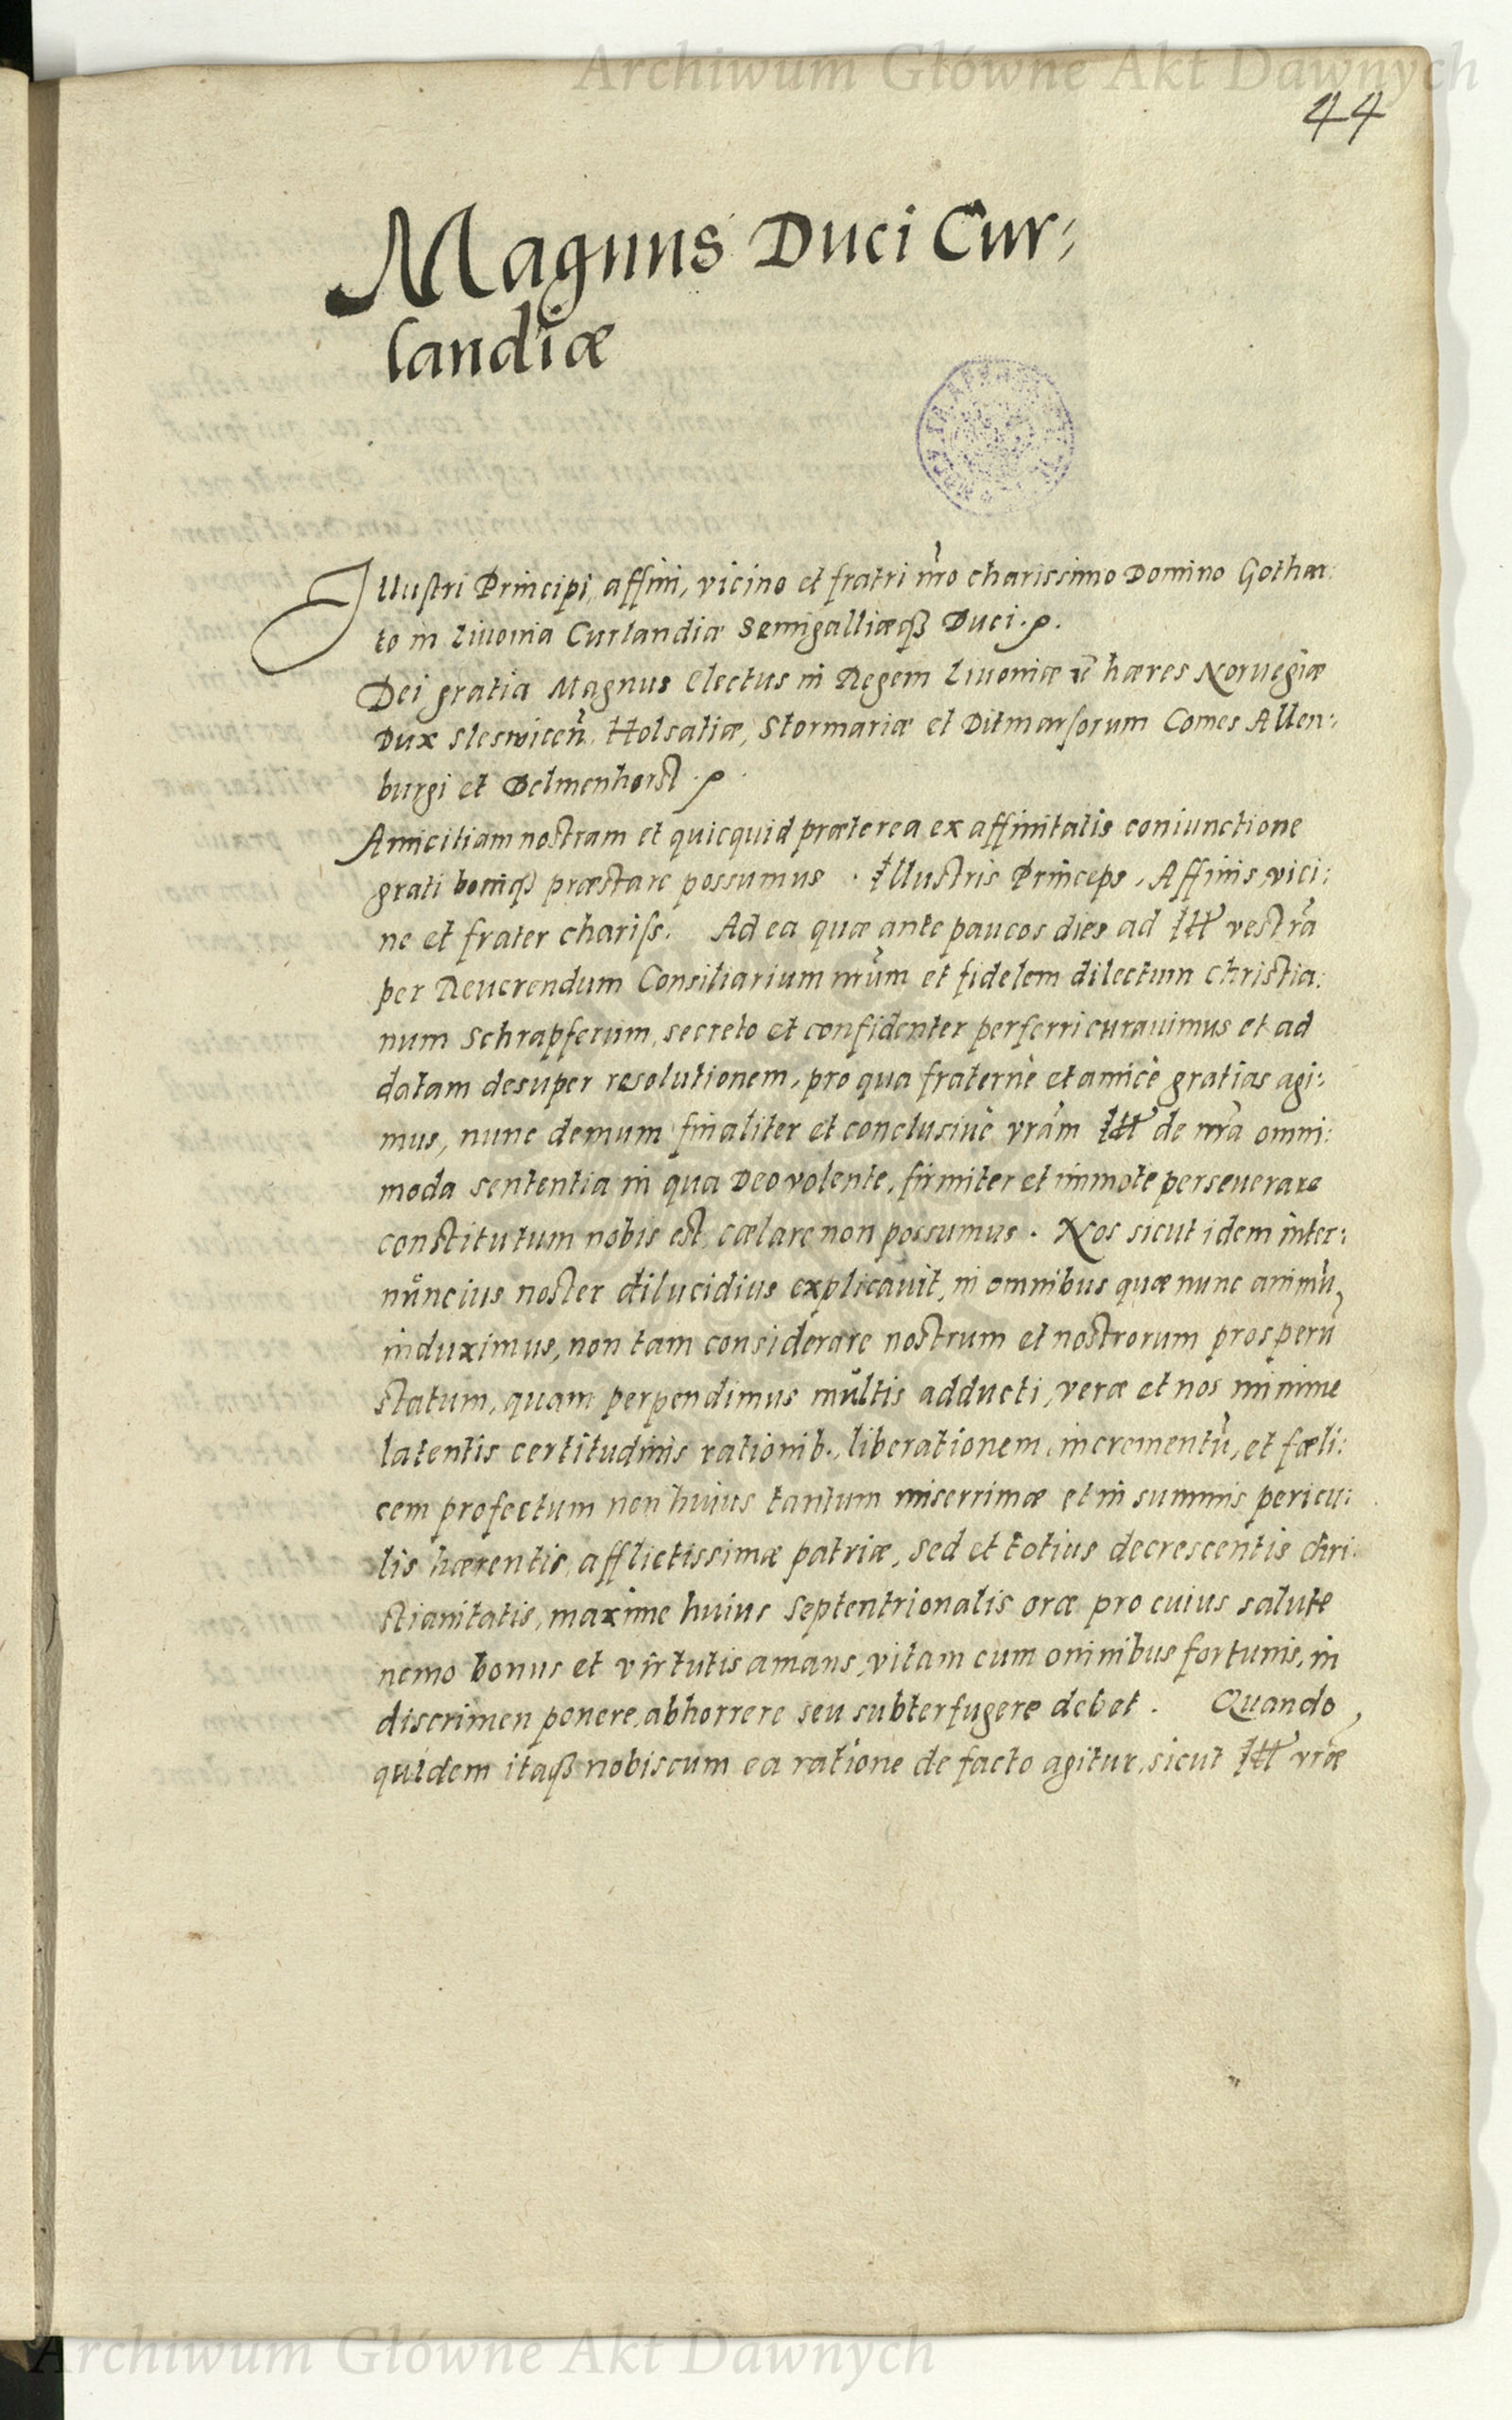 Archiwum Główne Akt Dawnych
44
Magnus Duci Cur:
landiæ
Illustri Principi, affini, vicino et fratri nr̃o charissimo Domino Gothar:
to in Liuonia Curlandiæ Semigalliæq3 Duci.
Dei gratia Magnus Electus in Regem Liuoniæ hæres Noruegiæ
Dux Sleswicen̄, Holsatiæ, Stormariæ et Ditmarsorum Comes Allen:
burgi et Delmenhorst.
Amicitiam nostram et quicquid præterea ex affinitatis coniunctione
grati boniq3 præstare possumus. Illustris Princeps, Affinis, vici:
ne et frater chariss. Ad ea quæ ante paucos dies ad Ill vestrã
per Reuerendum Consiliarium nrũm et fidelem dilectum Christia:
num Schrapferum, secreto et confidenter perferri curauimus et ad
datam desuper resolutionem, pro qua fraternè et amicè gratias agi:
mus, nunc demum finaliter et conclusiuè vrãm Ill de nrã omni:
moda sententia in qua Deo volente, firmiter et immotè perseuerare
constitutum nobis est, cælare non possumus. Nos sicut idem inter:
nuncius noster dilucidius explicauit, in omnibus quæ nunc animũ
induximus, non tam considerare nostrum et nostrorum prosperũ
statum, quam perpendimus multis adducti, veræ et nos minime
latentis certitudinis rationib., liberationem, incrementũ, et fœli:
cem profectum non huius tantum miserrimæ et in summis pericu:
lis hærentis, afflictissimæ patriæ, sed et totius decrescentis Chri:
stianitatis, maxime huius Septentrionalis oræ pro cuius salute
nemo bonus et virtutis amans, vitam cum omnibus fortunis, in
discrimen ponere, abhorrere seu subterfugere debet. Quando,
quidem itaq3 nobiscum ea ratione de facto agitur, sicut Ill vrãe
Archiwum Główne Akt Dawnych